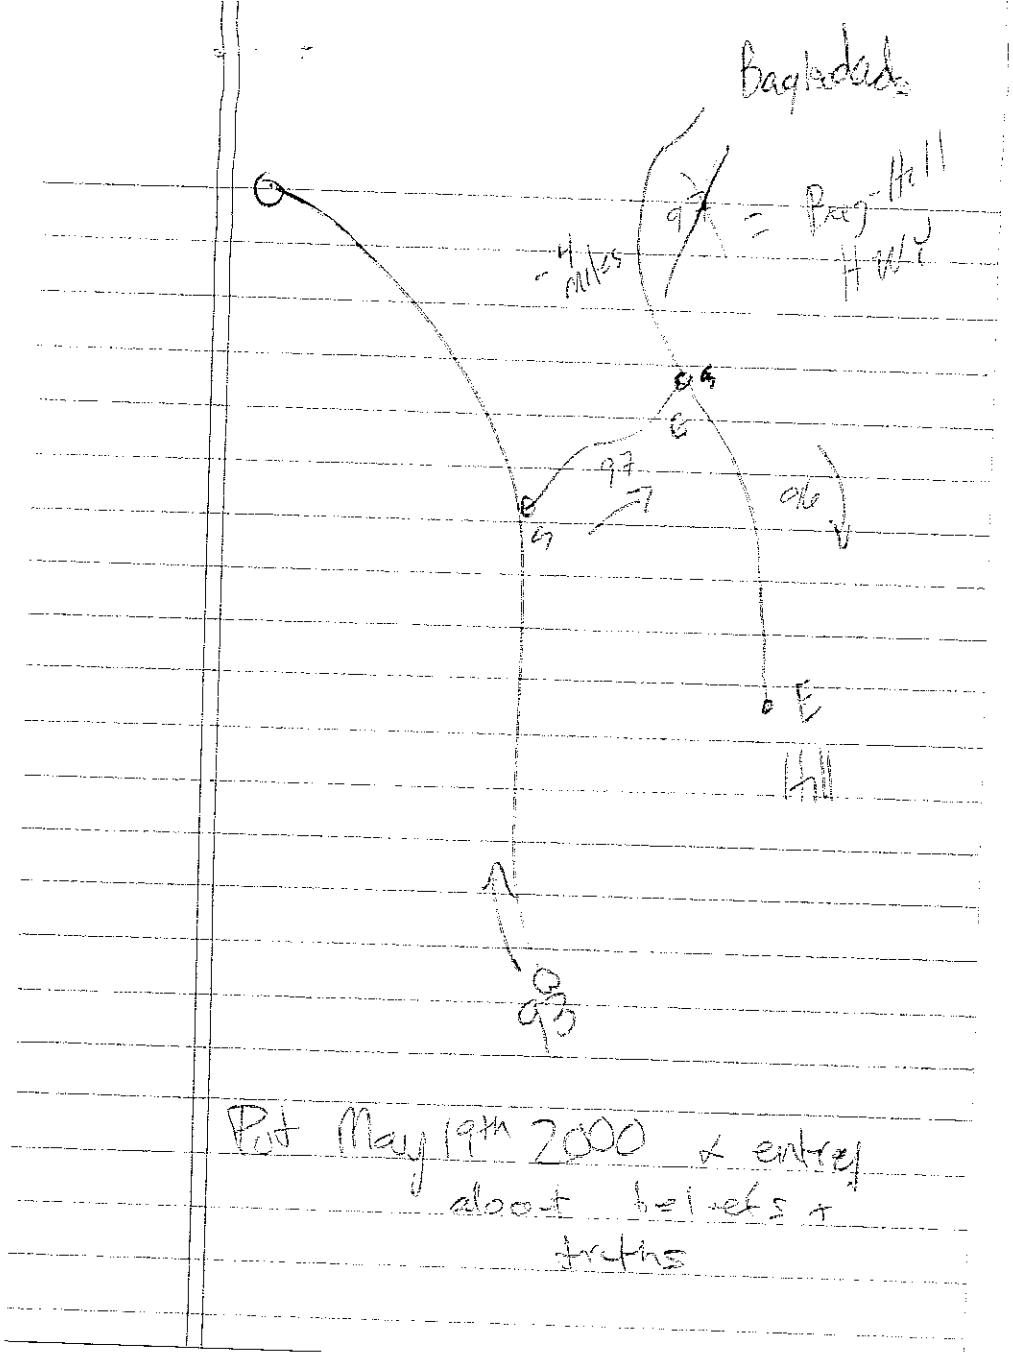 Baghdad
97 = Bag-Hill
Hwy
~4
miles
G
97
96
G
E
Hill
93
Put May 19th 2000 & entry
about beliefs +
truths